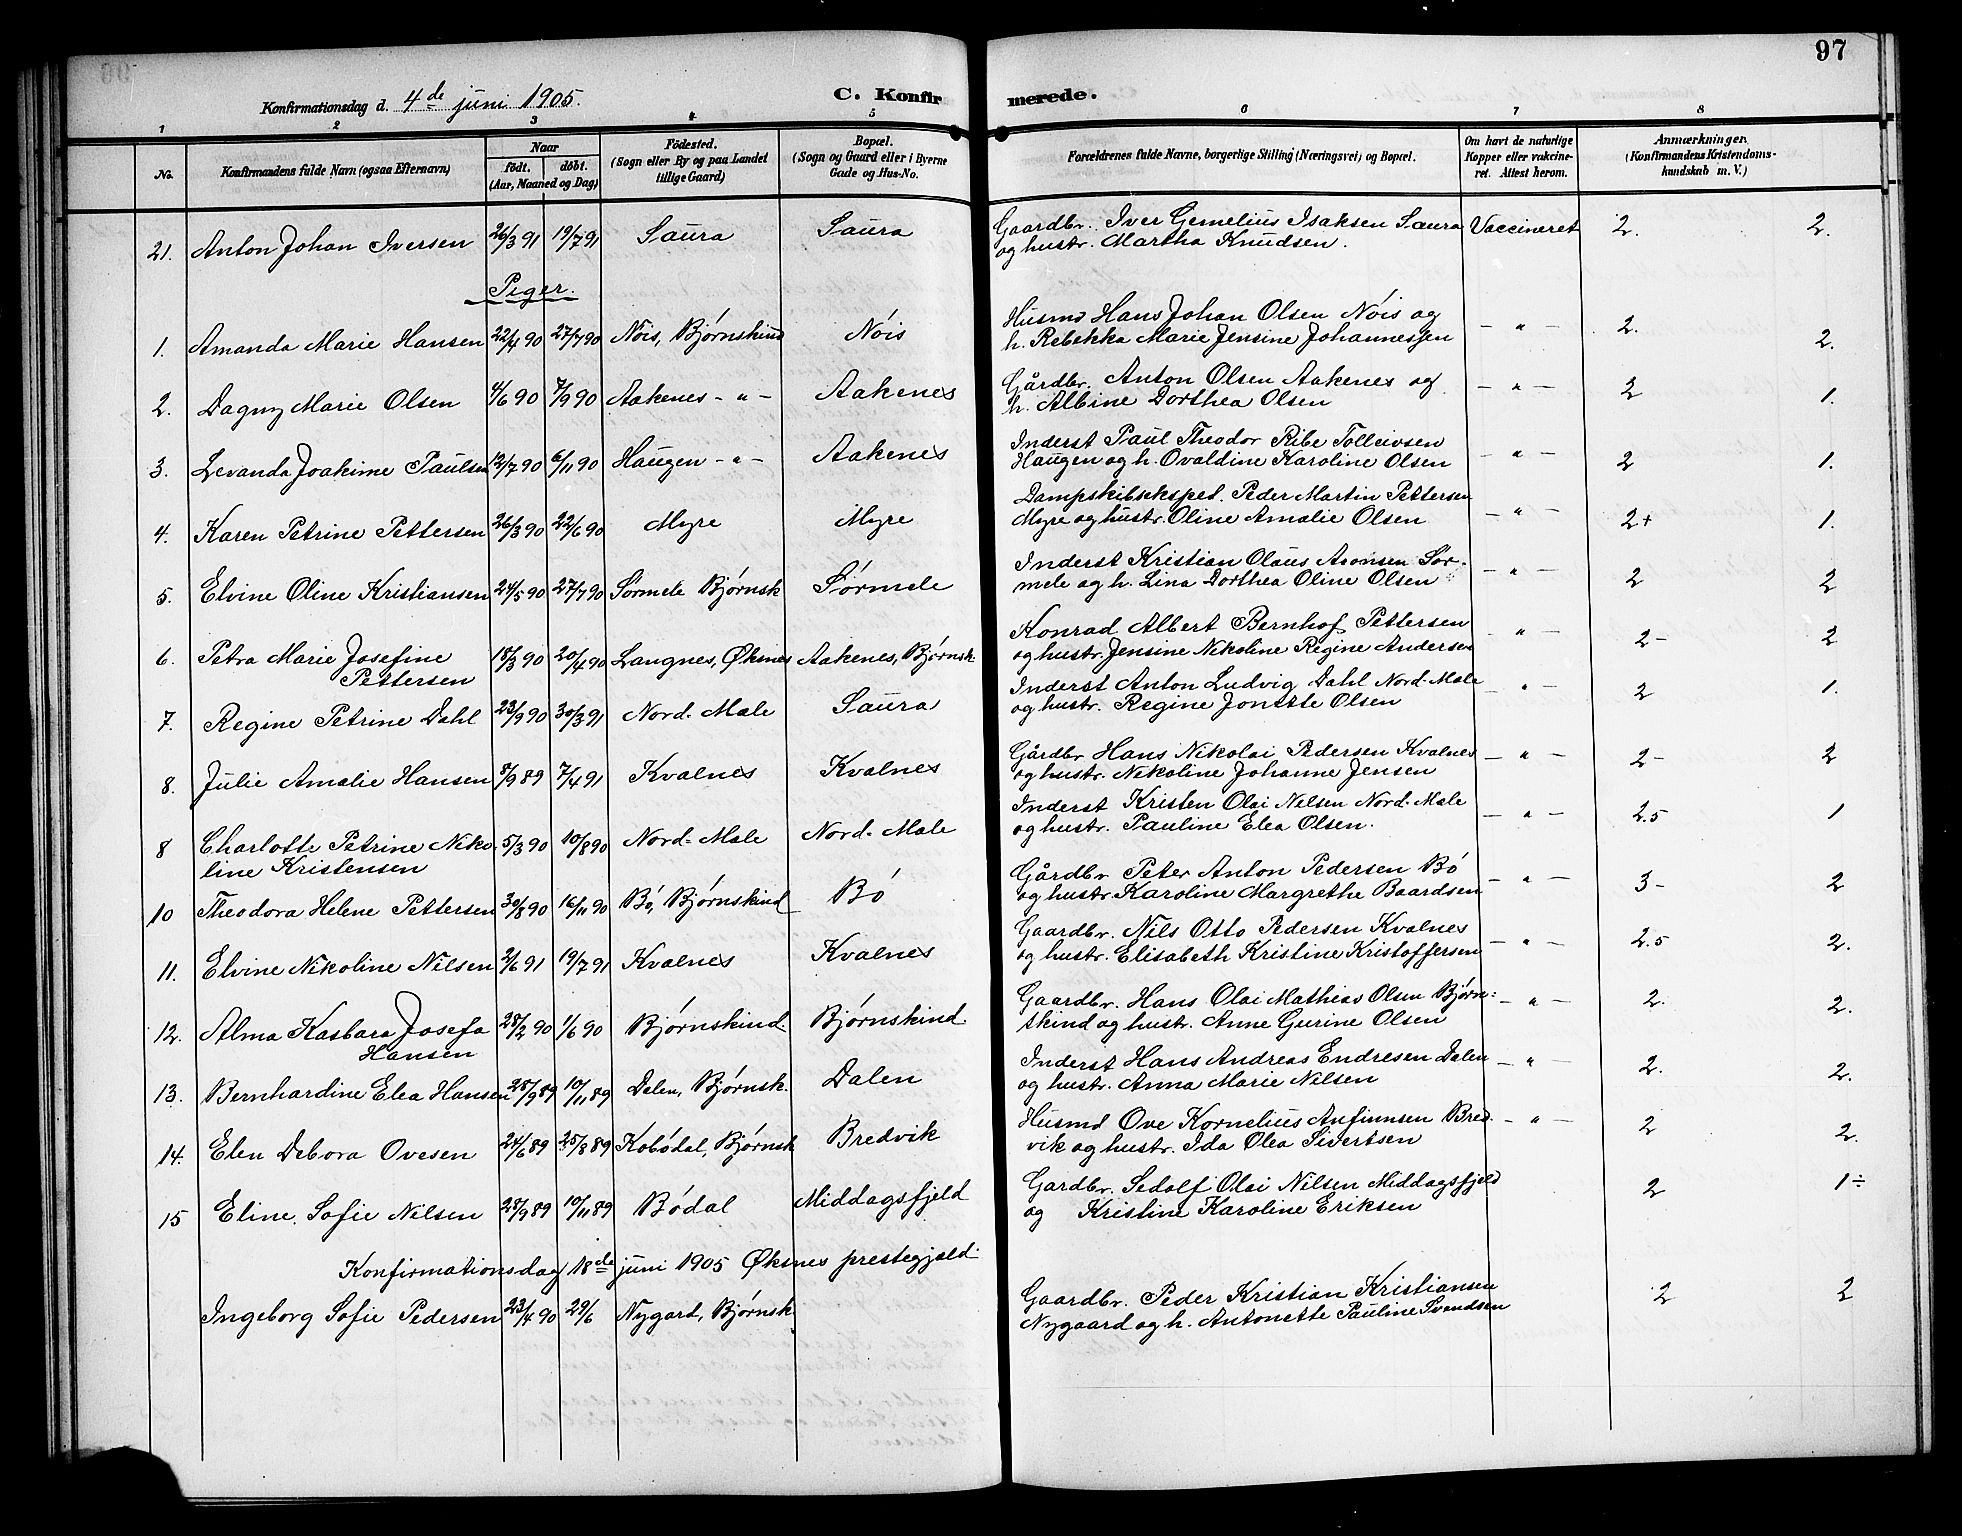 97
Konfirmationsdag d. 4de juni 1905. C. Konfirmerede.
1 2 3 4 5 6 7 8
No. Konfirmandens fulde Navn (ogsaa Efternavn) Naar födt. döbt. (Aar, Maaned og Dag) Födested. (Sogn eller By og paa Landet tillige Gaard) Bopæl. (Sogn og Gaard eller i Byerne Gade og Hus-No. Forældrenes fulde Navne, borgerlige Stilling (Næringsvei) og Bopæl. Om havt de naturlige Kopper eller vakcineret. Attest herom. Anmærkninger. (Konfirmandens Kristendomskundskab m. V.)
21. Anton Johan Iversen 26/3 91 19/7 91 Saura Saura Gaardbr. Iver Gemelius Isaksen Saura Vaccineret 2. 2.
og hustr. Martha Knudsen.
Piger.
1. Amanda Marie Hansen 22/4 90 27/7 90 Nóis, Bjørnskind Nóis Husmd Hans Johan Olsen Nóis og — " — 2. 2.
h. Rebekka Marie Jensine Johannessen
2. Dagny Marie Olsen 4/6 90 7/9 90 Aakenes - " - Aakenes Gårdbr. Anton Olsen Aakenes og — " — 2 1.
h. Albine Dorthea Olsen
3. Levanda Joakime Paulsen 12/7 90 6/11 90 Haugen - " - Aakenes Inderst Paul Theodor Ribe Tolleivsen — " — 2 1.
Haugen og h. Ovaldine Karoline Olsen
4. Karen Petrine Pettersen 26/3 90 22/6 90 Myre Myre Dampskibseksped. Peder Martin Pettersen — " — 2+ 1.
Myre og hustr. Oline Amalie Olsen
5. Elvine Oline Kristiansen 24/5 90 27/7 90 Sørmele Bjørnsk Sørmele Inderst Kristian Olaus Aronsen Sør- — " — 2 2
mele og h. Lina Dorthea Oline Olsen
6. Petra Marie Josefine 18/3 90 20/4 90 Langnes, Øksnes Aakenes, Bjørnsk. Konrad Albert Bernhof Pettersen " — 2- 2
Pettersen og hustr. Jensine Nikoline Regine Andersen
7. Regine Petrine Dahl 23/9 90 30/3 91 Nord-Male Saura Inderst Anton Ludvig Dahl Nord-Male — " — 2 1.
og hustr. Regine Jonette Olsen
8. Julie Amalie Hansen 8/9 89 7/4 91 Kvalnes Kvalnes Gårdbr Hans Nikolai Pedersen Kvalnes — " — 2- 2
og hustr. Nikoline Johanne Jensen
8 Charlotte Petrine Niko- 5/3 90 10/8 90 Nord-Male Nord-Male Inderst Kristen Olai Nilsen Nord-Male — " — 2.5 1
line Kristensen og hustr. Pauline Elea Olsen.
10 Theodora Helene Pettersen 30/8 90 16/11 90 Bó, Bjørnskind Bó Gårdbr Peter Anton Pedersen Bó — " — 3- 2
og hustr Karoline Margrethe Baardsen
11. Elvine Nikoline Nilsen 2/6 91 19/7 91 Kvalnes Kvalnes Gaardbr. Nils Otto Pedersen Kvalnes — " — 2.5 2.
og hustr. Elisabeth Kristine Kristoffersen
12. Alma Kasbara Josefa 28/2 90 1/6 90 Bjørnskind. Bjørnskind. Gaardbr. Hans Olai Mathias Olsen Bjørn- — " — 2. 2.
Hansen skind og hustr. Anne Gurine Olsen
13. Bernhardine Elea Hansen 28/9 89 10/11 89 Dalen, Bjørnsk. Dalen Inderst Hans Andreas Endresen Dalen — " — 2. 2.
og hustr. Anna Marie Nilsen
14. Elen Debora Ovesen 24/6 89 25/8 89 Kobódal, Bjørnsk Bredvik Husmd Ove Kornelius Anfinnsen Bred- — " — 2 2.
vik og hustr. Ida Olea Sivertsen
15 Eline Sofie Nilsen 28/9 89 10/11 89 Bódal Middagsfjeld Gardbr. Sedolf Olai Nilsen Middagsfjeld 2 1÷
og Kristine Karoline Eriksen
Konfirmationsdag 18de juni 1905 Øksnes prestegjeld.
Ingeborg Sofie Pedersen 23/4 90 29/6 Nygard, Bjørnsk Gaardbr. Peder Kristian Kristiansen 2 2
Nygaard og h. Antonette Pauline Svendsen